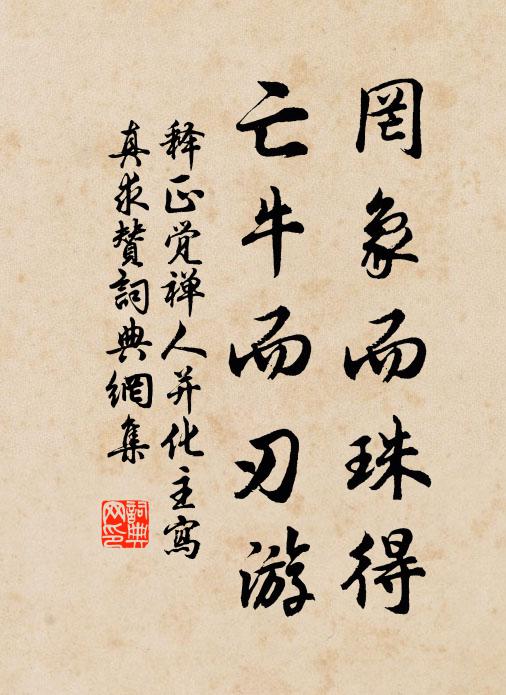 罔象而珠得
亡牛而刃游
释正觉禅人并化主寫
真求賛詞典網集
詞典网印